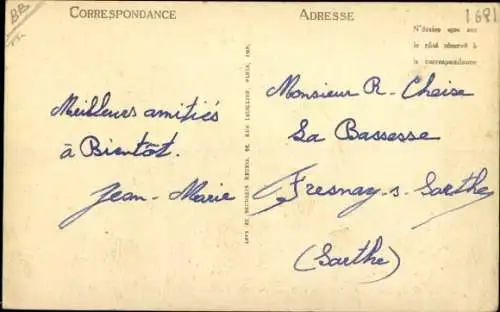 BB
CORRESPONDANCE
Meilleurs amitiés
à Bientôt.
Jean-Marie
ADRESSE
1681
N'écrire que sur
le côté réservé à
la correspondance
Monsieur R. Chaise
La Bassesse
Fresnay-s-Sarthe
(Sarthe)